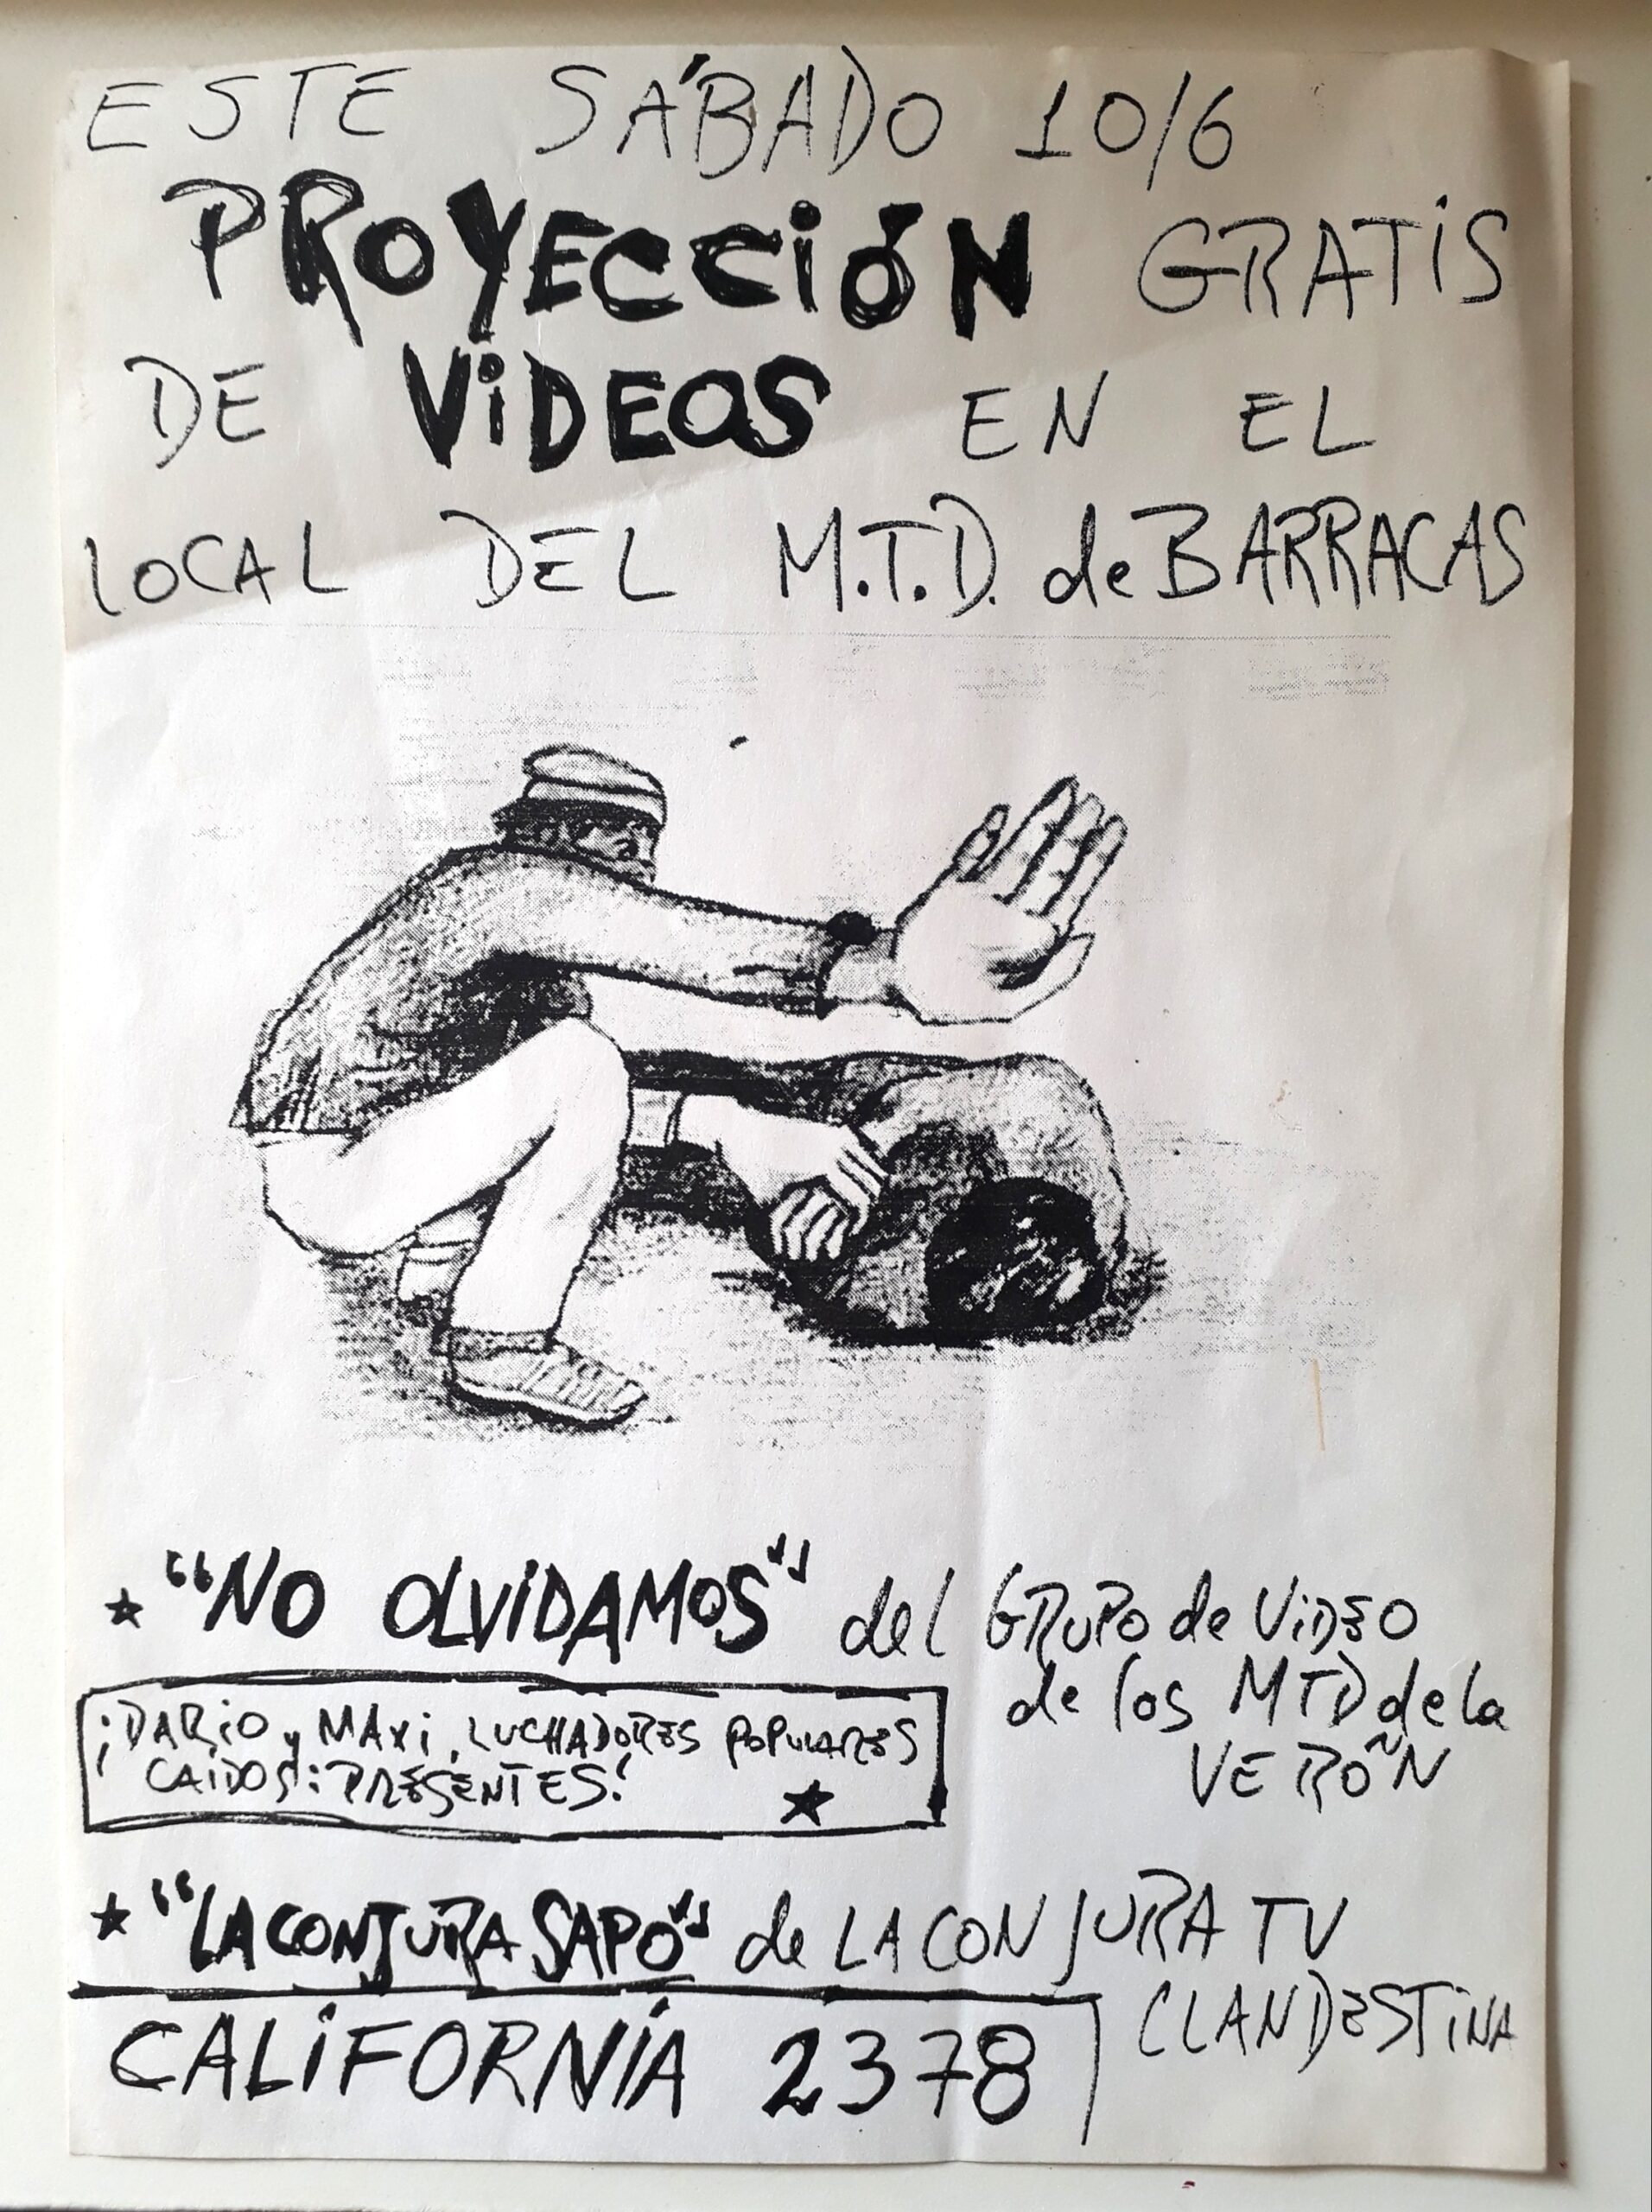 ESTE SÁBADO 10/6
PROYECCIÓN GRATIS
DE VIDEOS EN EL
LOCAL DEL M.T.D. de BARRACAS
★ "NO OLVIDAMOS" del GRUPO de VIDEO
de los MTD de la
VERÓN
¡DARIO y MAXI, LUCHADORES POPULARES
CAIDOS: PRESENTES!
★
★ "LA CONJURA SAPO" de LA CONJURA TV
CLANDESTINA
CALIFORNIA 2378